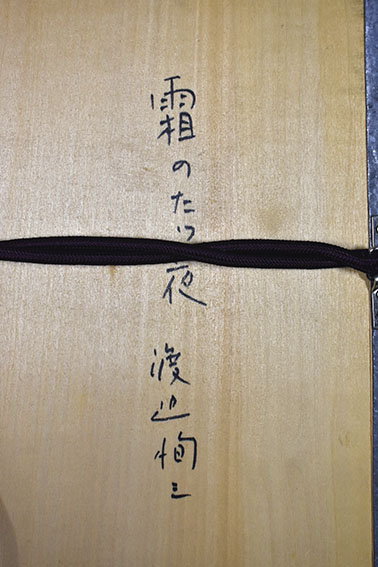 霜のたつ夜 渡辺恂三